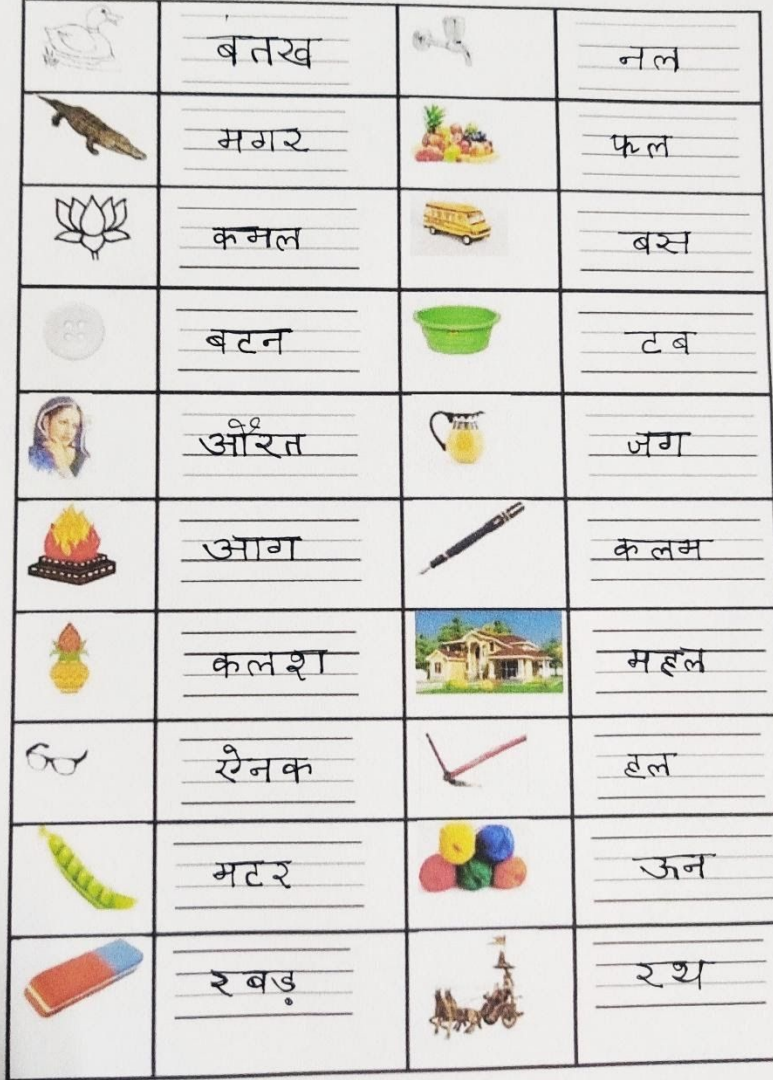 बतख नल
मगर फल
कमल बस
बटन टब
औरत जग
आग कलम
कलश महल
ऐनक हल
मटर ऊन
रबड़ रथ